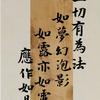 一切有為法
如夢幻泡影
如露亦如電
應作如是